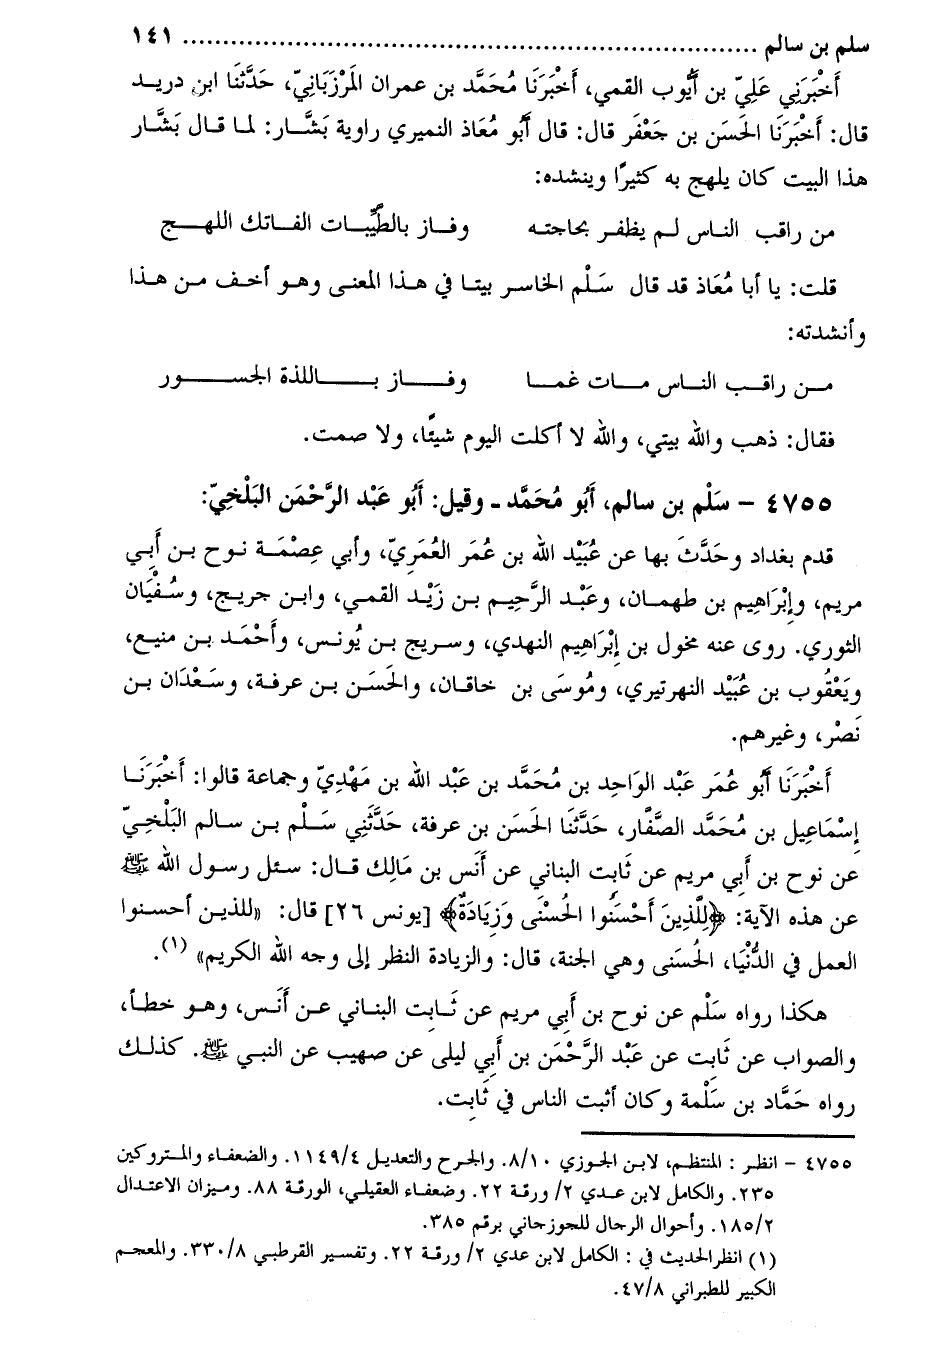 سلم بن سالم ................................................................ ١٤١
أَخْبَرَنِي عَلِيّ بن أَيُّوب القمي، أَخْبَرَنَا مُحَمَّد بن عمران المَرْزبَانِيّ، حَدَّثَنَا ابن دريد
قال: أَخْبَرَنَا الحَسَن بن جَعْفَر قال: قال أَبُو مُعَاذ النميري راوية بَشَّار: لما قال بَشَّار
هذا البيت كان يلهج به كثيرًا وينشده:
من راقب الناس لم يظفر بحاجته وفاز بالطَّيِّبات الفاتك اللهج
قلت: يا أبا مُعَاذ قد قال سَلْم الخاسر بيتا في هذا المعنى وهو أخف من هذا
وأنشدته:
من راقب الناس مات غما وفاز باللذة الجسور
فقال: ذهب والله بيتي، والله لا أكلت اليوم شيئًا، ولا صمت.
٤٧٥٥ - سَلْم بن سالم، أَبُو مُحَمَّد - وقيل: أَبُو عَبْد الرَّحْمَن البَلْخِيّ:
قدم بغداد وحَدَّثَ بها عن عُبَيْد الله بن عُمَر العُمَرِيّ، وأبي عِصْمَة نوح بن أَبِي
مريم، وإِبْرَاهِيم بن طهمان، وعَبْد الرَّحِيم بن زَيْد القمي، وابن جريج، وسُفْيَان
الثوري. روى عنه مخول بن إِبْرَاهِيم النهدي، وسريج بن يُونس، وأَحْمَد بن منيع،
ويَعْقُوب بن عُبَيْد النهرتيري، ومُوسَى بن خاقان، والحَسَن بن عرفة، وسَعْدَان بن
نَصْر، وغيرهم.
أَخْبَرَنَا أَبُو عُمَر عَبْد الوَاحِد بن مُحَمَّد بن عَبْد الله بن مَهْدِيّ وجماعة قالوا: أَخْبَرَنَا
إِسْمَاعِيل بن مُحَمَّد الصَّفَّار، حَدَّثَنَا الحَسَن بن عرفة، حَدَّثَنِي سَلْم بن سالم البَلْخِيّ
عن نوح بن أَبِي مريم عن ثَابِت البناني عن أَنَس بن مَالِك قال: سئل رسول الله ﷺ
عن هذه الآية: ﴿لِلَّذِينَ أَحْسَنُوا الحُسْنَى وَزِيَادَةٌ﴾ [يونس ٢٦] قال: «للذين أحسنوا
العمل في الدُّنْيَا، الحُسنى وهي الجنة، قال: والزيادة النظر إلى وجه الله الكريم» (١).
هكذا رواه سَلْم عن نوح بن أَبِي مريم عن ثَابِت البناني عن أَنَس، وهو خطأ،
والصواب عن ثَابِت عن عَبْد الرَّحْمَن بن أَبِي ليلى عن صهيب عن النبي ﷺ. كذلك
رواه حَمَّاد بن سَلَمة وكان أثبت الناس في ثَابِت.
٤٧٥٥ - انظر : المنتظم، لابن الجوزي ٨/١٠. والجرح والتعديل ١١٤٩/٤. والضعفاء والمتروكين
٢٣٥. والكامل لابن عدي ٢/ ورقة ٢٢. وضعفاء العقيلي، الورقة ٨٨. وميزان الاعتدال
١٨٥/٢. وأحوال الرجال للجوزجاني برقم ٣٨٥.
(١) انظر الحديث في : الكامل لابن عدي ٢/ ورقة ٢٢. وتفسير القرطبي ٣٣٠/٨. والمعجم
الكبير للطبراني ٤٧/٨.